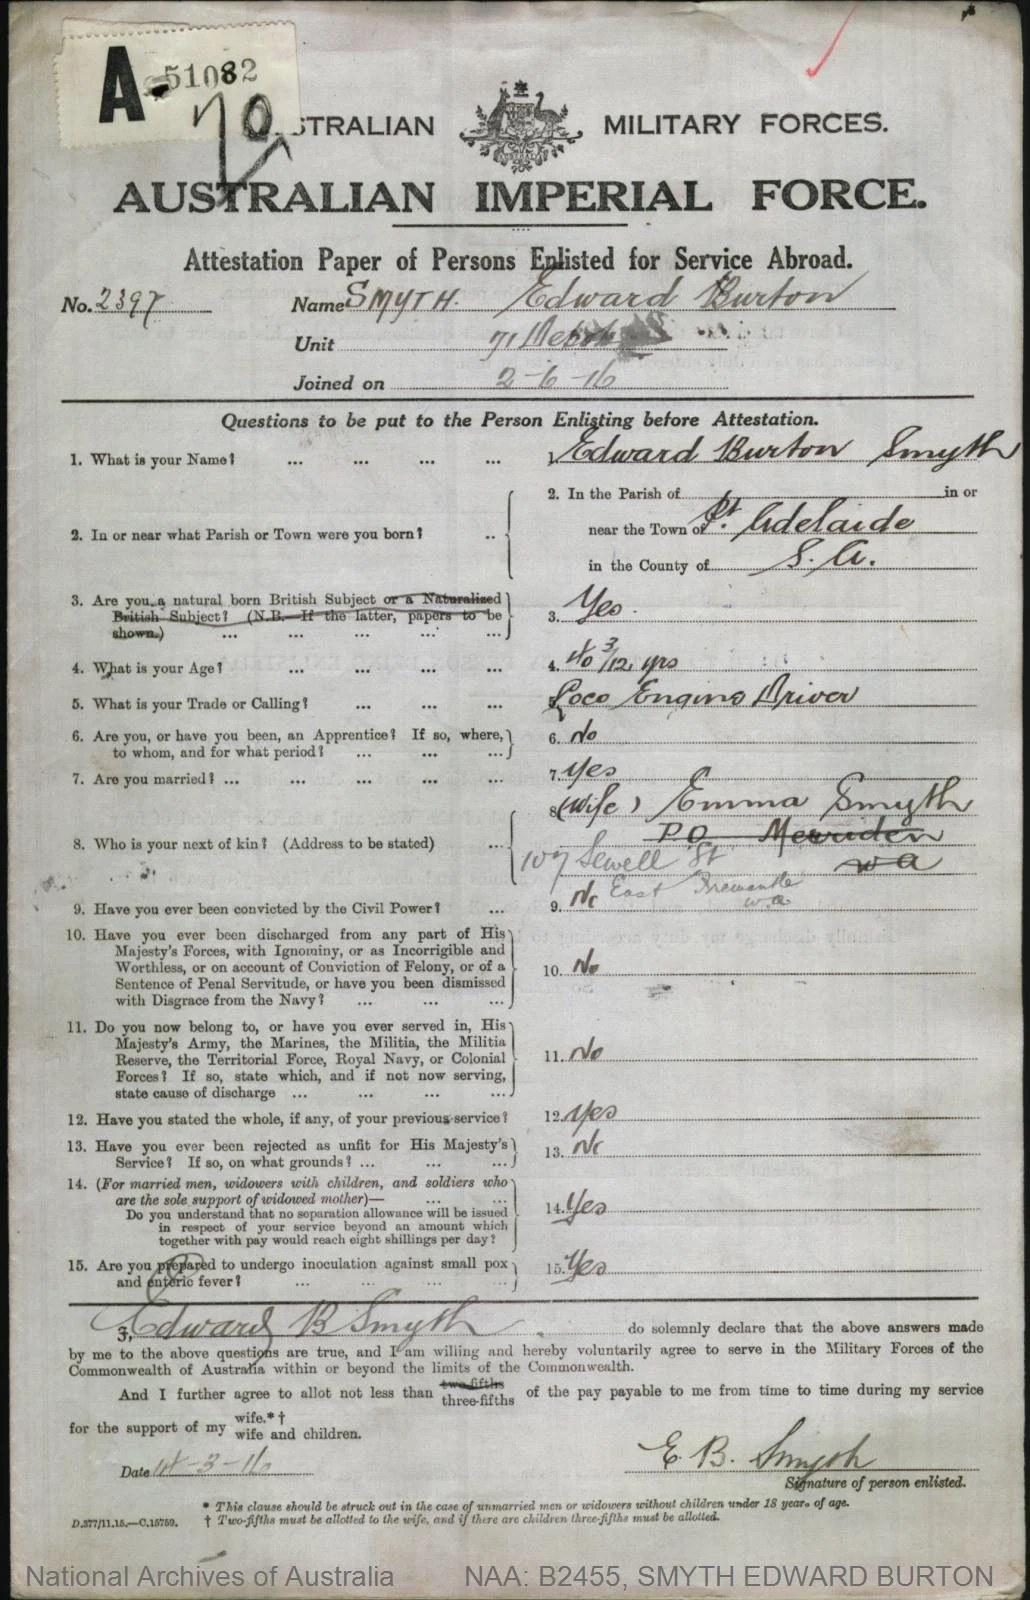 A 51082
AUSTRALIAN MILITARY FORCES.
AUSTRALIAN IMPERIAL FORCE.
Attestation Paper of Persons Enlisted for Service Abroad.
No. 2397 Name SMYTH. Edward Burton
Unit 71 Depot
Joined on 2-6-16
Questions to be put to the Person Enlisting before Attestation.
1. What is your Name? ... ... ... ... 1. Edward Burton Smyth
2. In or near what Parish or Town were you born? .. 2. In the Parish of in or
near the Town of Pt. Adelaide
in the County of S.A.
3. Are you a natural born British Subject or a Naturalized
British Subject? (N.B.—If the latter, papers to be
shown.) ... ... ... ... ... 3. Yes.
4. What is your Age? ... ... ... ... 4. 40 3/12 yrs
5. What is your Trade or Calling? ... ... ... 5. Loco Engine Driver
6. Are you, or have you been, an Apprentice? If so, where,
to whom, and for what period? ... ... ... 6. No
7. Are you married? ... ... ... ... ... 7. Yes
8. Who is your next of kin? (Address to be stated) ... 8. (Wife) Emma Smyth
P.O. Merriden
W A
107 Sewell St
East Fremantle
W.A.
9. Have you ever been convicted by the Civil Power? ... 9. No
10. Have you ever been discharged from any part of His
Majesty's Forces, with Ignominy, or as Incorrigible and
Worthless, or on account of Conviction of Felony, or of a
Sentence of Penal Servitude, or have you been dismissed
with Disgrace from the Navy? ... ... ... 10. No
11. Do you now belong to, or have you ever served in, His
Majesty's Army, the Marines, the Militia, the Militia
Reserve, the Territorial Force, Royal Navy, or Colonial
Forces? If so, state which, and if not now serving,
state cause of discharge ... ... ... ... 11. No
12. Have you stated the whole, if any, of your previous service? 12. Yes
13. Have you ever been rejected as unfit for His Majesty's
Service? If so, on what grounds? ... ... ... 13. No
14. (For married men, widowers with children, and soldiers who
are the sole support of widowed mother)— ... ...
Do you understand that no separation allowance will be issued
in respect of your service beyond an amount which
together with pay would reach eight shillings per day? 14. Yes
15. Are you prepared to undergo inoculation against small pox
and enteric fever? ... ... ... ... 15. Yes
I, Edward B Smyth do solemnly declare that the above answers made
by me to the above questions are true, and I am willing and hereby voluntarily agree to serve in the Military Forces of the
Commonwealth of Australia within or beyond the limits of the Commonwealth.
And I further agree to allot not less than two-fifths three-fifths of the pay payable to me from time to time during my service
for the support of my wife.*† wife and children.
Date 14-3-16 E. B. Smyth
Signature of person enlisted.
* This clause should be struck out in the case of unmarried men or widowers without children under 18 years of age.
D.377/11.15.—C.15759. † Two-fifths must be allotted to the wife, and if there are children three-fifths must be allotted.
National Archives of Australia NAA: B2455, SMYTH EDWARD BURTON